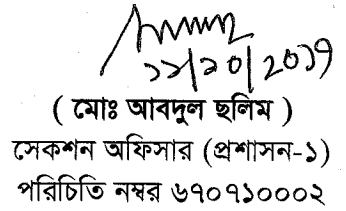 ১২/১০/২০১৭
( মোঃ আবদুল ছলিম )
সেকশন অফিসার (প্রশাসন-১)
পরিচিতি নম্বর ৬৭০৭১০০০২